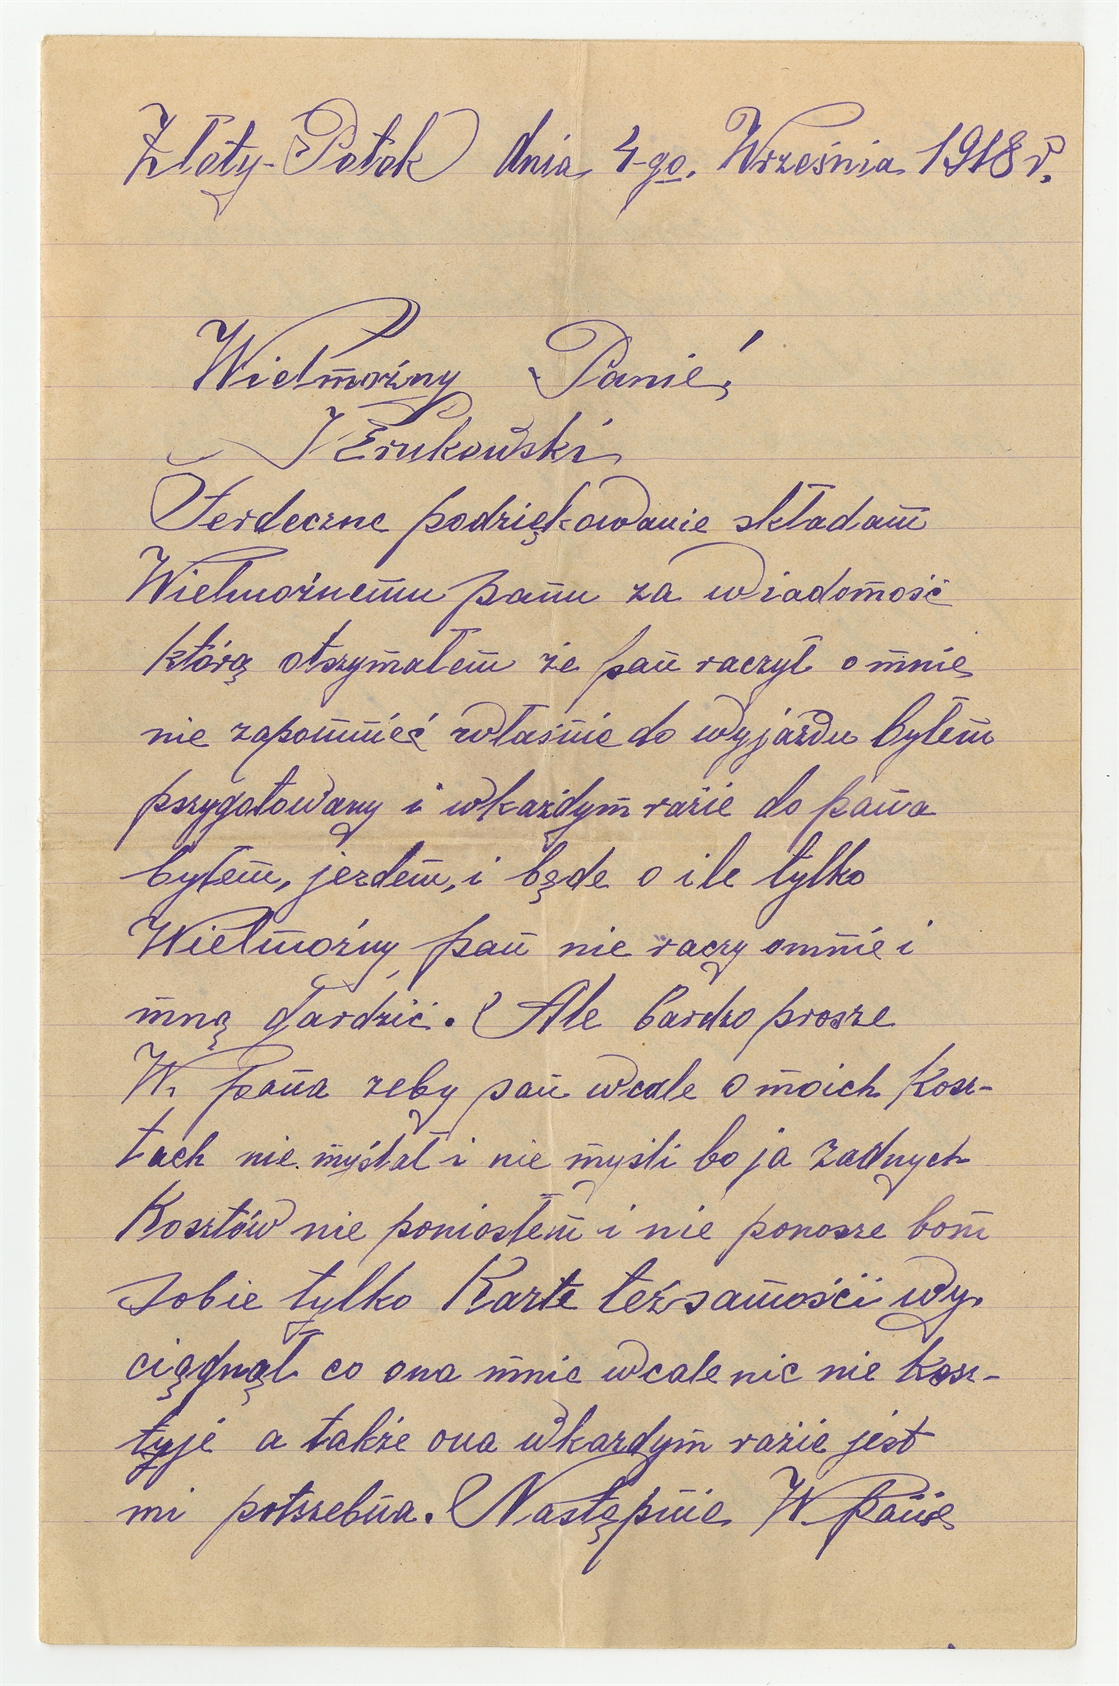 Złoty-Potok dnia 4-go. Września 1918 r.
Wielmożny Panie,
Serdeczne podziękowanie składam
Wielmożnemu panu za wiadomość
którą otszymałem że pan raczył o mnie
nie zapomnieć właśnie do wyjazdu byłem
pszygotowany i wkażdym razie do pana
byłem, jezdem, i będe o ile tylko
Wielmożny pan nie raczy omnie i
mną gardzić. Ale bardzo prosze
W. pana zeby pan wcale o moich Kosz-
tach nie myślał i nie myśli bo ja zadnych
Kosztów nie poniosłem i nie ponosze bom
sobie tylko Karte teżsamości wy.
ciągnął co ona mnie wcale nic nie kosz-
tyje a także ona wkazdym razie jest
mi potszebna. Następnie W. panie